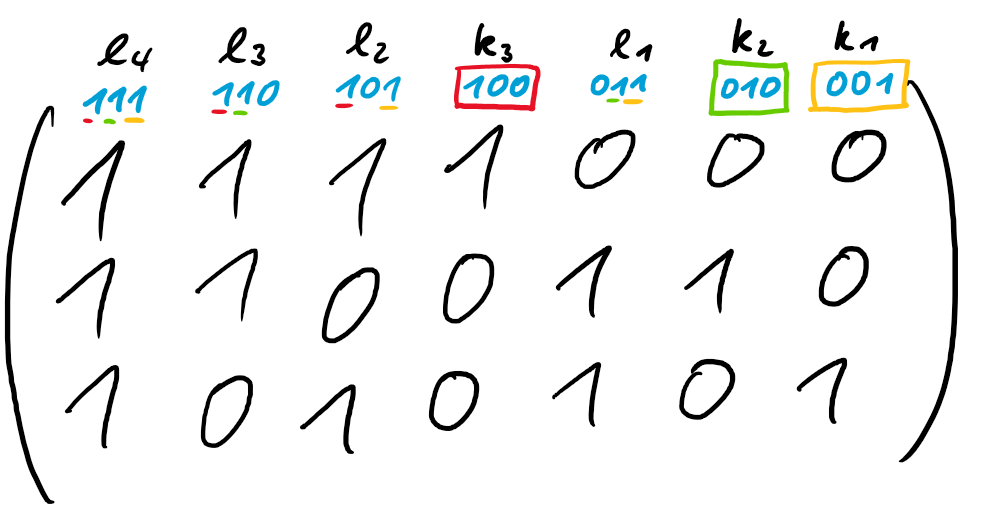 ℓ₄ ℓ₃ ℓ₂ k₃ ℓ₁ k₂ k₁
111 110 101 100 011 010 001
1 1 1 1 0 0 0
1 1 0 0 1 1 0
1 0 1 0 1 0 1